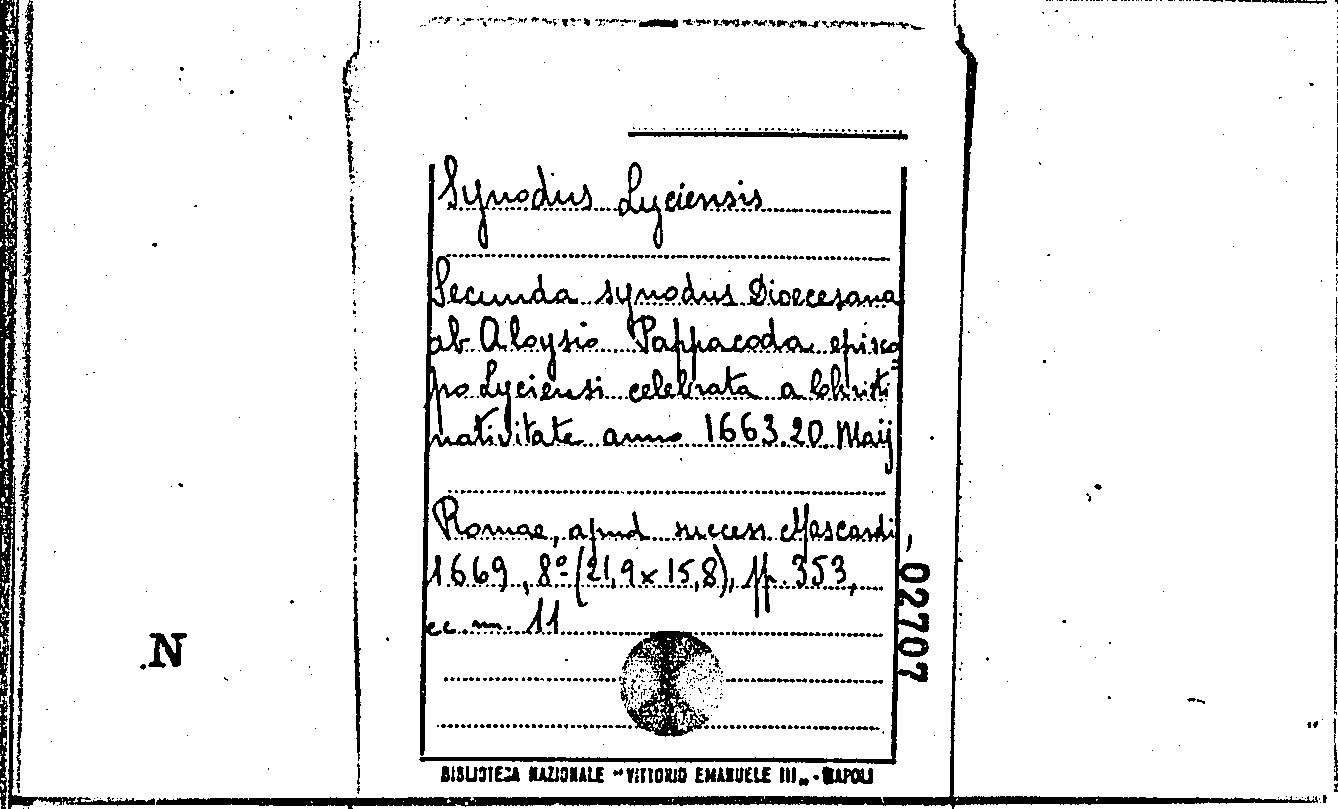 Synodus Lyciensis
Secunda synodus Dioecesana
ab Aloysio Pappacoda episco
po Lyciensi celebrata a Christi
nativitate anno 1663.20 Maij
Romae, apud success Mascardi,
1669, 8º (21,9 x 15,8), pp. 353,
cc. nn. 11
02707
N
BIBLIOTECA NAZIONALE "VITTORIO EMANUELE III" - NAPOLI